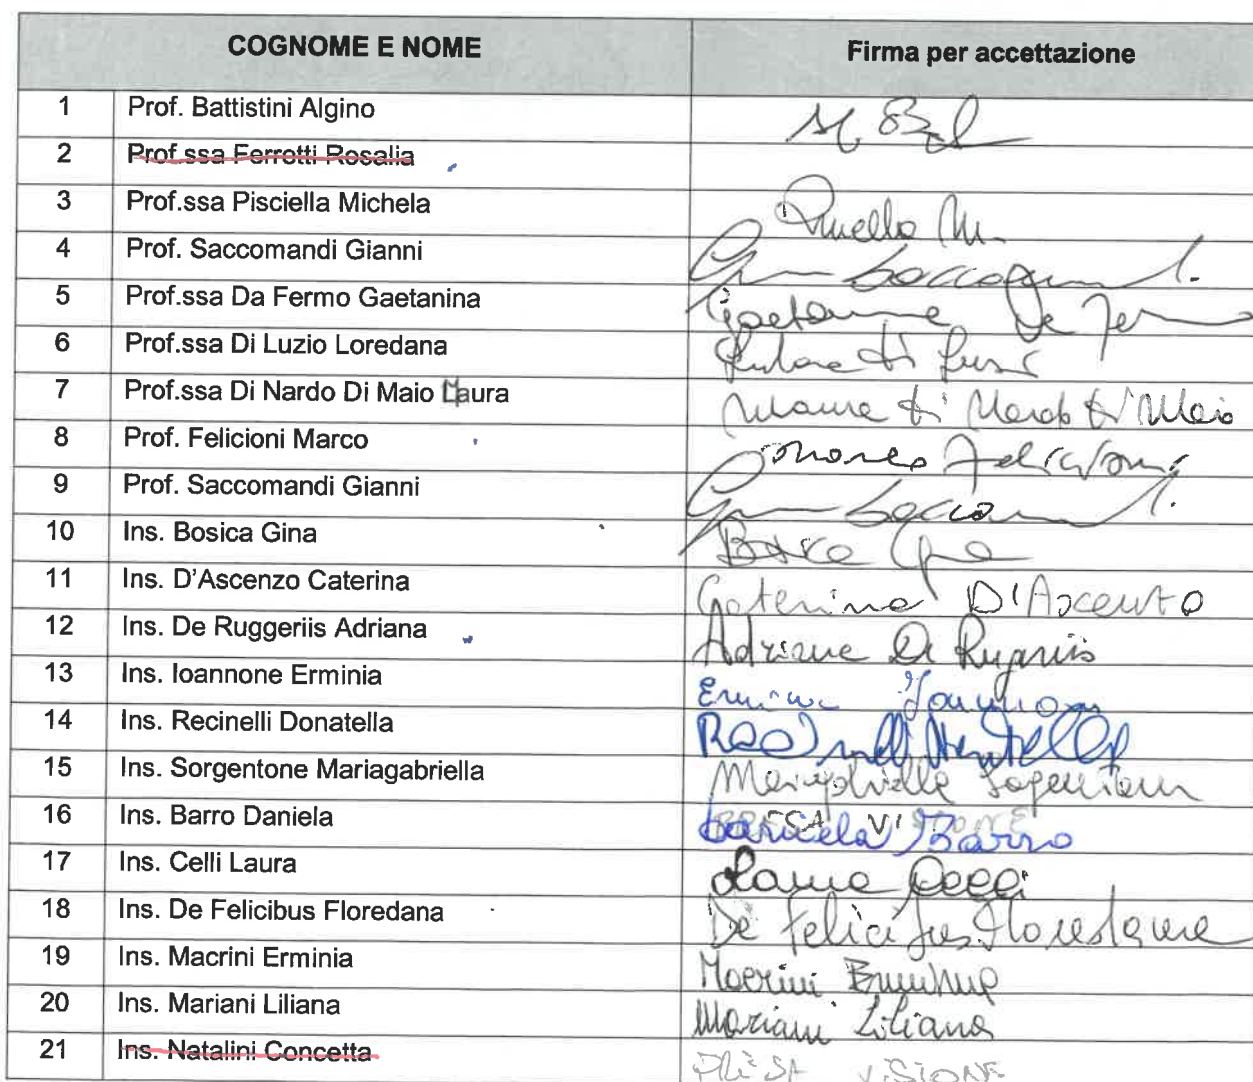 COGNOME E NOME Firma per accettazione
1 Prof. Battistini Algino
2 Prof.ssa Ferretti Rosalia
3 Prof.ssa Pisciella Michela
4 Prof. Saccomandi Gianni
5 Prof.ssa Da Fermo Gaetanina Gaetanina De Fermo
6 Prof.ssa Di Luzio Loredana
7 Prof.ssa Di Nardo Di Maio Maura Maura Di Nardo Di Maio
8 Prof. Felicioni Marco Marco Felicioni
9 Prof. Saccomandi Gianni
10 Ins. Bosica Gina
11 Ins. D'Ascenzo Caterina Caterina D'Ascenzo
12 Ins. De Ruggeriis Adriana Adriana De Rugeriis
13 Ins. Ioannone Erminia
14 Ins. Recinelli Donatella
15 Ins. Sorgentone Mariagabriella
16 Ins. Barro Daniela PRESA VISIONE Daniela Barro
17 Ins. Celli Laura Laura Celli
18 Ins. De Felicibus Floredana De Felicibus Floredana
19 Ins. Macrini Erminia Macrini Erminia
20 Ins. Mariani Liliana Mariani Liliana
21 Ins. Natalini Concetta PRESA VISIONE